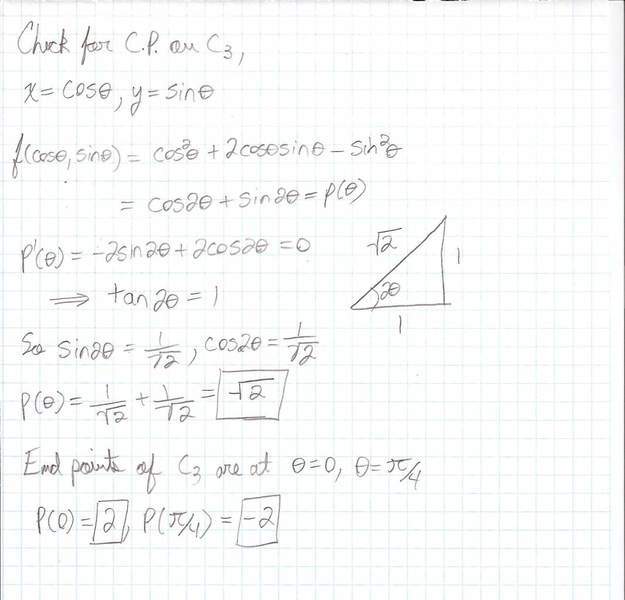 Check for C.P. on C₃,
x = cosθ, y = sinθ
f(cosθ, sinθ) = cos²θ + 2cosθsinθ - sin²θ
= cos2θ + sin2θ = P(θ)
P'(θ) = -2sin2θ + 2cos2θ = 0
⟹ tan2θ = 1
√2
1
2θ
1
So sin2θ = 1/√2, cos2θ = 1/√2
P(θ) = 1/√2 + 1/√2 = √2
End points of C₃ are at θ=0, θ=π/4
P(0) = 2, P(π/4) = -2